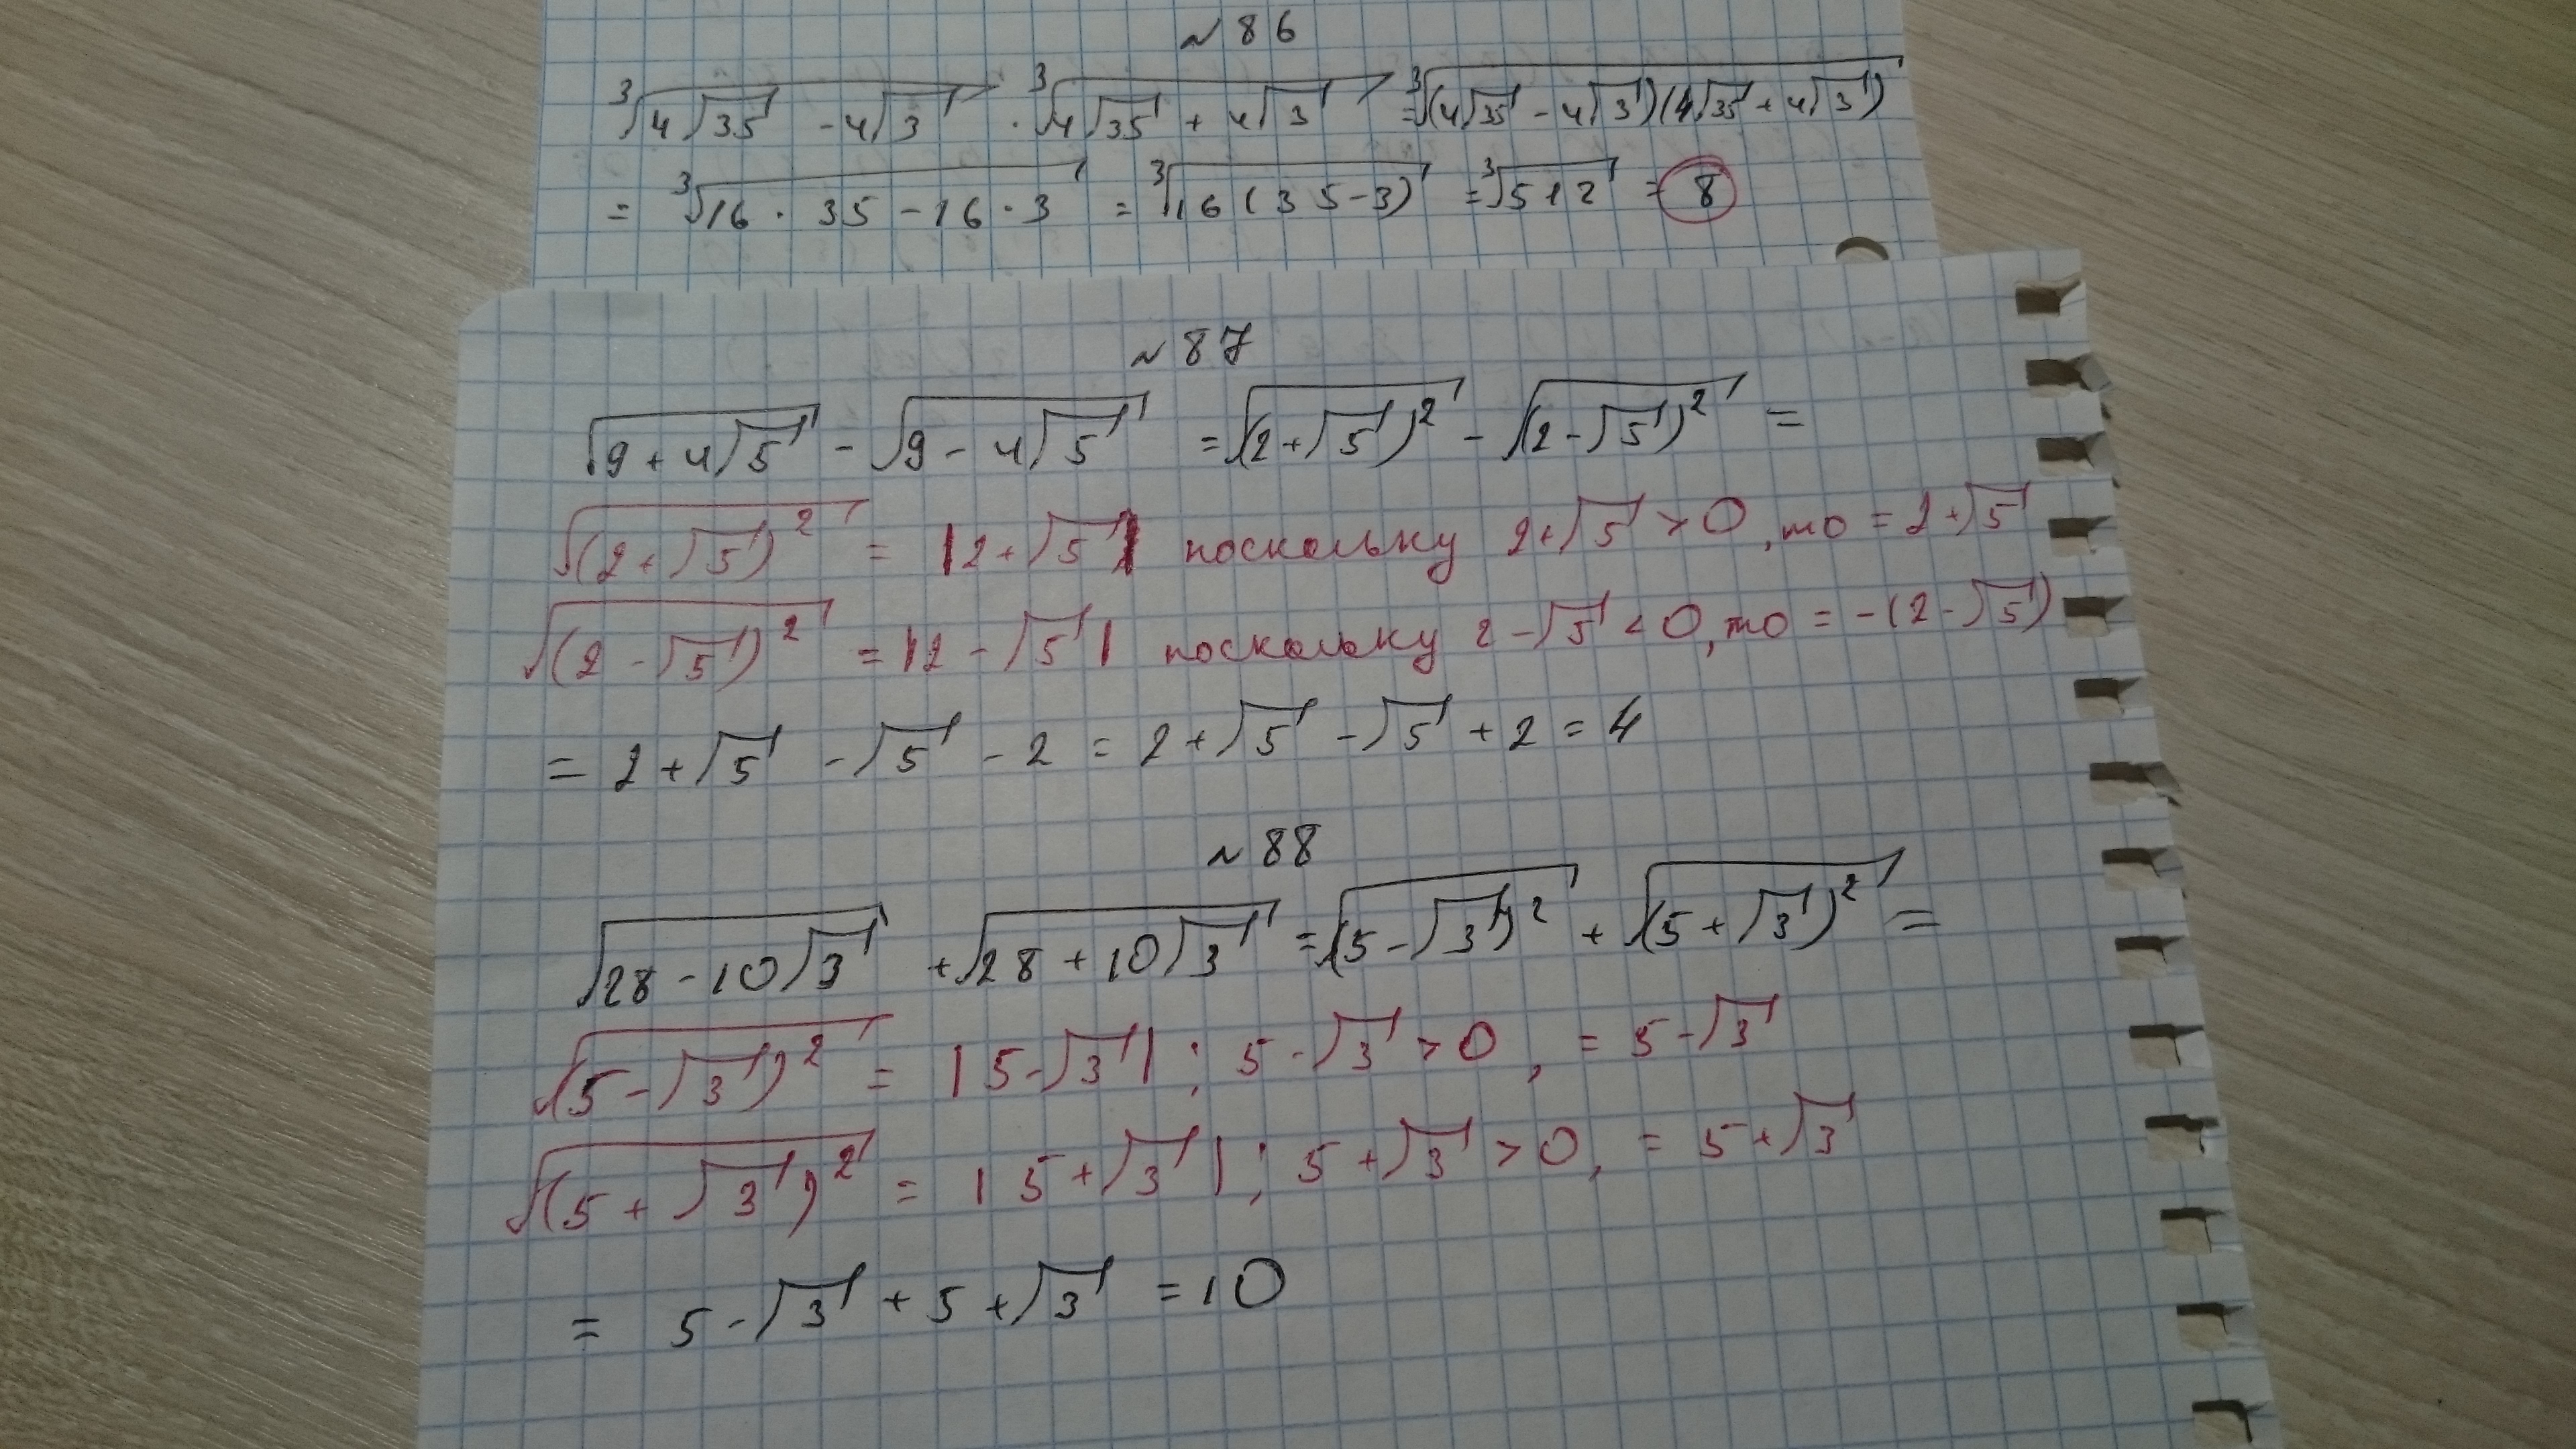 ~ 86
∛(4√35 - 4√3) · ∛(4√35 + 4√3) = ∛((4√35 - 4√3)(4√35 + 4√3))
= ∛(16 · 35 - 16 · 3) = ∛(16(35-3)) = ∛512 = 8
~ 87
√(9 + 4√5) - √(9 - 4√5) = √((2+√5)²) - √((2-√5)²) =
√((2+√5)²) = |2+√5| поскольку 2+√5 > 0, то = 2+√5
√((2-√5)²) = |2-√5| поскольку 2-√5 < 0, то = -(2-√5)
= 2+√5 - √5 - 2 = 2+√5 - √5 + 2 = 4
~ 88
√(28 - 10√3) + √(28 + 10√3) = √((5-√3)²) + √((5+√3)²) =
√((5-√3)²) = |5-√3| ; 5-√3 > 0, = 5-√3
√((5+√3)²) = |5+√3| ; 5+√3 > 0, = 5+√3
= 5-√3 + 5+√3 = 10